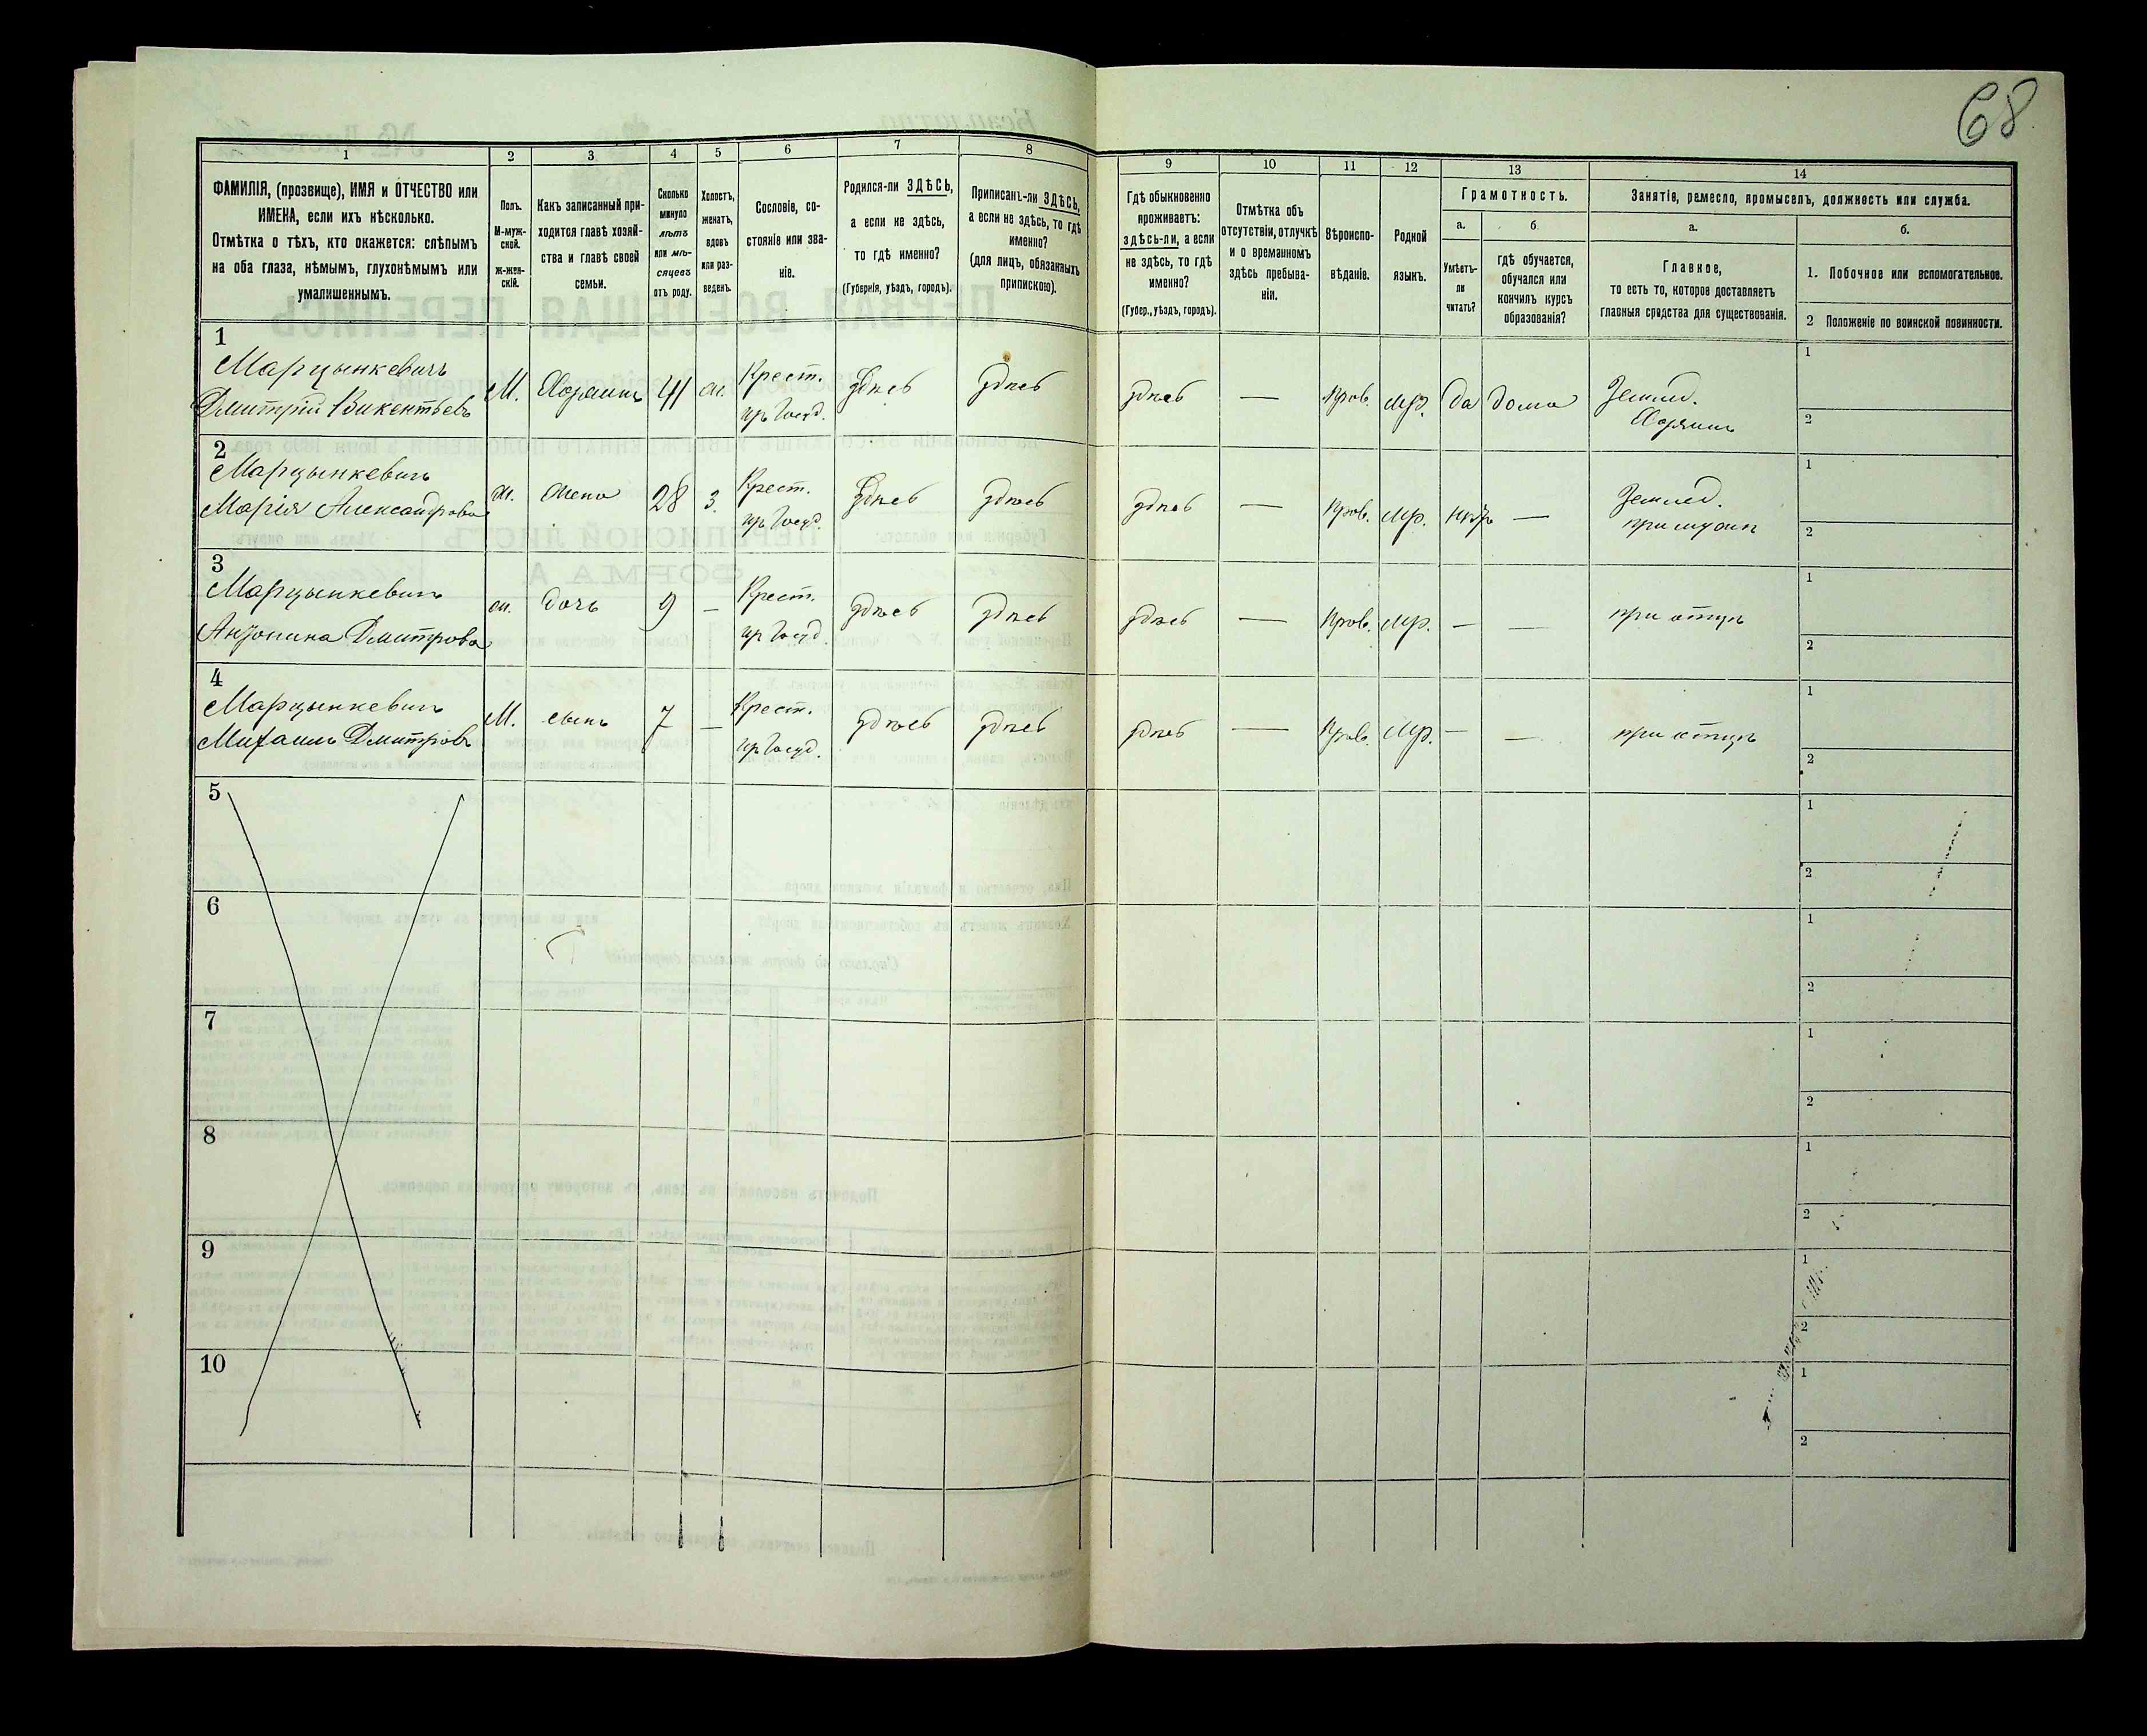 68
1
2
3
4
5
6
7
8
9
10
11
12
13
14
ФАМИЛІЯ, (прозвище), ИМЯ и ОТЧЕСТВО или
ИМЕНА, если ихъ нѣсколько.
Отмѣтка о тѣхъ, кто окажется: слѣпымъ
на оба глаза, нѣмымъ, глухонѣмымъ или
умалишеннымъ.
Полъ.
М-муж-
ской.
ж-жен-
скій.
Какъ записанный при-
ходится главѣ хозяй-
ства и главѣ своей
семьи.
Сколько
минуло
лѣтъ
или мѣ-
сяцевъ
отъ роду.
Холостъ,
женатъ,
вдовъ
или раз-
веденъ.
Сословіе, со-
стояніе или зва-
ніе.
Родился-ли ЗДѢСЬ,
а если не здѣсь,
то гдѣ именно?
(Губернія, уѣздъ, городъ).
Приписанъ-ли ЗДѢСЬ,
а если не здѣсь, то гдѣ
именно?
(для лицъ, обязанныхъ
припискою).
Гдѣ обыкновенно
проживаетъ:
здѣсь-ли, а если
не здѣсь, то гдѣ
именно?
(Губер., уѣздъ, городъ).
Отмѣтка объ
отсутствіи, отлучкѣ
и о временномъ
здѣсь пребыва-
ніи.
Вѣроиспо-
вѣданіе.
Родной
языкъ.
Грамотность.
а.
б
Умѣетъ-
ли
читать?
гдѣ обучается,
обучался или
кончилъ курсъ
образованія?
Занятіе, ремесло, промыселъ, должность или служба.
а.
б.
Главное,
то есть то, которое доставляетъ
главныя средства для существованія.
1. Побочное или вспомогательное.
2 Положеніе по воинской повинности.
1
Марцынкевичъ
Дмитрій Викентьевъ
М.
Хозяинъ
41
ж.
Крест.
здѣсь
здѣсь
здѣсь
—
Прав.
да
дома
Землед.
Хозяинъ
1
2
2
Марцынкевичъ
Марія Александрова
ж.
жена
28
з.
Крест.
здѣсь
здѣсь
здѣсь
—
Прав.
—
Землед.
при мужѣ
1
2
3
Марцынкевичъ
Антонина Дмитрова
ж.
дочь
9
—
Крест.
здѣсь
здѣсь
здѣсь
—
Прав.
—
—
при отцѣ
1
2
4
Марцынкевичъ
Михаилъ Дмитровъ
М.
сынъ
7
—
Крест.
здѣсь
здѣсь
здѣсь
—
Прав.
—
—
при отцѣ
1
2
5
1
2
6
1
2
7
1
2
8
1
2
9
1
2
10
1
2